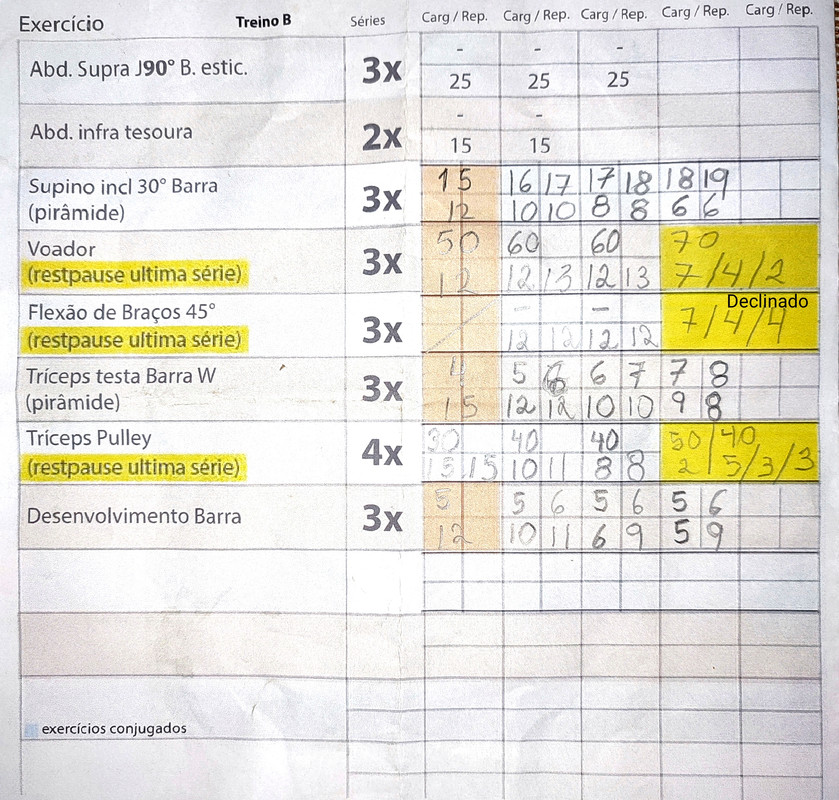 Exercício Treino B Séries Carg / Rep. Carg / Rep. Carg / Rep. Carg / Rep. Carg / Rep.
- - -
Abd. Supra J90° B. estic. 3x
25 25 25
- -
Abd. infra tesoura 2x
15 15
Supino incl 30° Barra 3x 15 16 17 17 18 18 19
(pirâmide) 12 10 10 8 8 6 6
Voador 3x 50 60 60 70
(restpause ultima série) 12 12 13 12 13 7/4/2
Declinado
Flexão de Braços 45° 3x - - 7/4/4
(restpause ultima série) 12 12 12 12
Tríceps testa Barra W 3x 4 5 6 6 7 7 8
(pirâmide) 15 12 12 10 10 9 8
Tríceps Pulley 4x 30 40 40 50/40
(restpause ultima série) 15 15 10 11 8 8 2/5/3/3
Desenvolvimento Barra 3x 5 5 6 5 6 5 6
12 10 11 6 9 5 9
exercícios conjugados